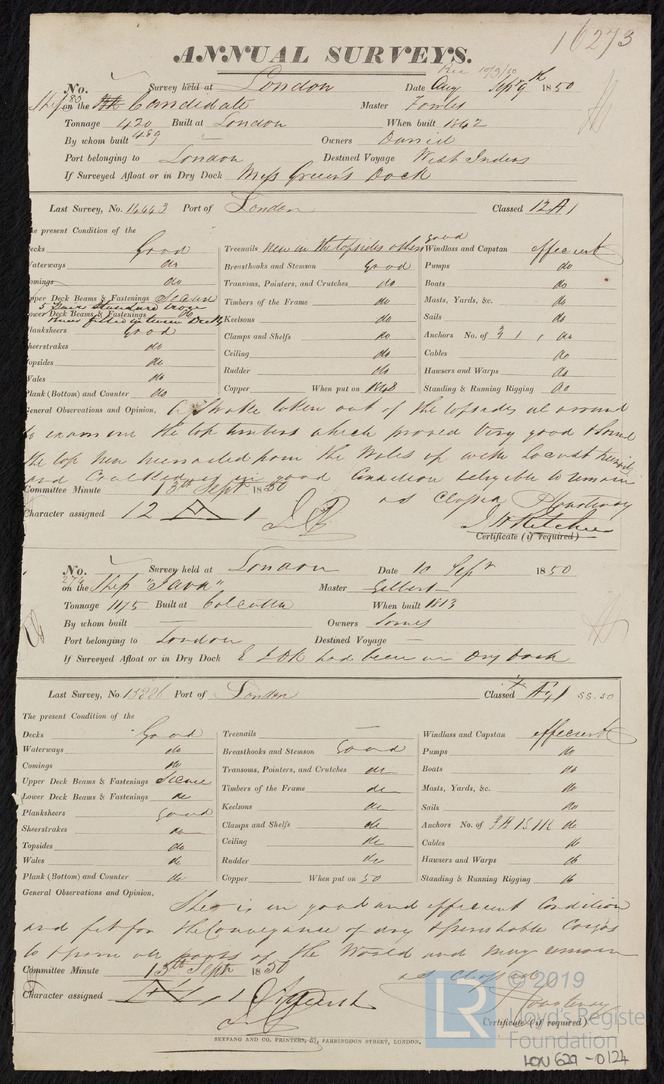 16273
ANNUAL SURVEYS.
Rec 10/9/50
No. 80 Survey held at London Date Aug Sept 9th 1850
on the Ship Candidate Master
Tonnage 420 489 Built at London When built 1842
By whom built — Owners Daniel
Port belonging to London Destined Voyage West Indies
If Surveyed Afloat or in Dry Dock Mess Green's Dock
Last Survey, No. 14443 Port of London Classed 12 A 1
The present Condition of the
Decks Good
Waterways do
Comings do
Upper Deck Beams & Fastenings Secure
Lower Deck Beams & Fastenings do
Planksheers good
Sheerstrakes do
Topsides do
Wales do
Plank (Bottom) and Counter do
Treenails New in the topsides others good
Breasthooks and Stemson Good
Transoms, Pointers, and Crutches do
Timbers of the Frame do
Keelsons do
Clamps and Shelfs do
Ceiling do
Rudder do
Copper When put on 1848
Windlass and Capstan efficient
Pumps do
Boats do
Masts, Yards, &c. do
Sails do
Anchors No. of 3 1 1 do
Cables do
Hawsers and Warps do
Standing & Running Rigging do
General Observations and Opinion, A Strake taken out of the topsides all around
to examine the top timbers which proved very good & sound
the top new from the Wales up with Locust treenails
and Caulked is in good Condition eligible to remain
as Classed
Committee Minute 13th Sept 1850
Character assigned 12 A 1
Certificate (if required)
No. 274 Survey held at London Date 10 Septr 1850
on the Ship "Java" Master Gilbert
Tonnage 1175 Built at Calcutta When built 1813
By whom built — Owners Somes
Port belonging to London Destined Voyage —
If Surveyed Afloat or in Dry Dock E I Dk had been in Dry Dock
Last Survey, No Port of London Classed 1 SS. 50
The present Condition of the
Decks Good
Waterways do
Comings do
Upper Deck Beams & Fastenings Secure
Lower Deck Beams & Fastenings do
Planksheers good
Sheerstrakes do
Topsides do
Wales do
Plank (Bottom) and Counter do
Treenails —
Breasthooks and Stemson Good
Transoms, Pointers, and Crutches do
Timbers of the Frame do
Keelsons do
Clamps and Shelfs do
Ceiling do
Rudder do
Copper When put on 50
Windlass and Capstan efficient
Pumps do
Boats do
Masts, Yards, &c. do
Sails do
Anchors No. of do
Cables do
Hawsers and Warps do
Standing & Running Rigging do
General Observations and Opinion,
She is in good and efficient Condition
and fit for the Conveyance of dry & perishable Cargos
to & from all parts of the World and may remain
as Classed
Committee Minute 13th Sept 1850
Character assigned
Certificate (if required)
SEYFANG AND CO. PRINTERS, 57, FARRINGDON STREET, LONDON.
LR © 2019
Lloyd's Register
Foundation
LON 629-0124